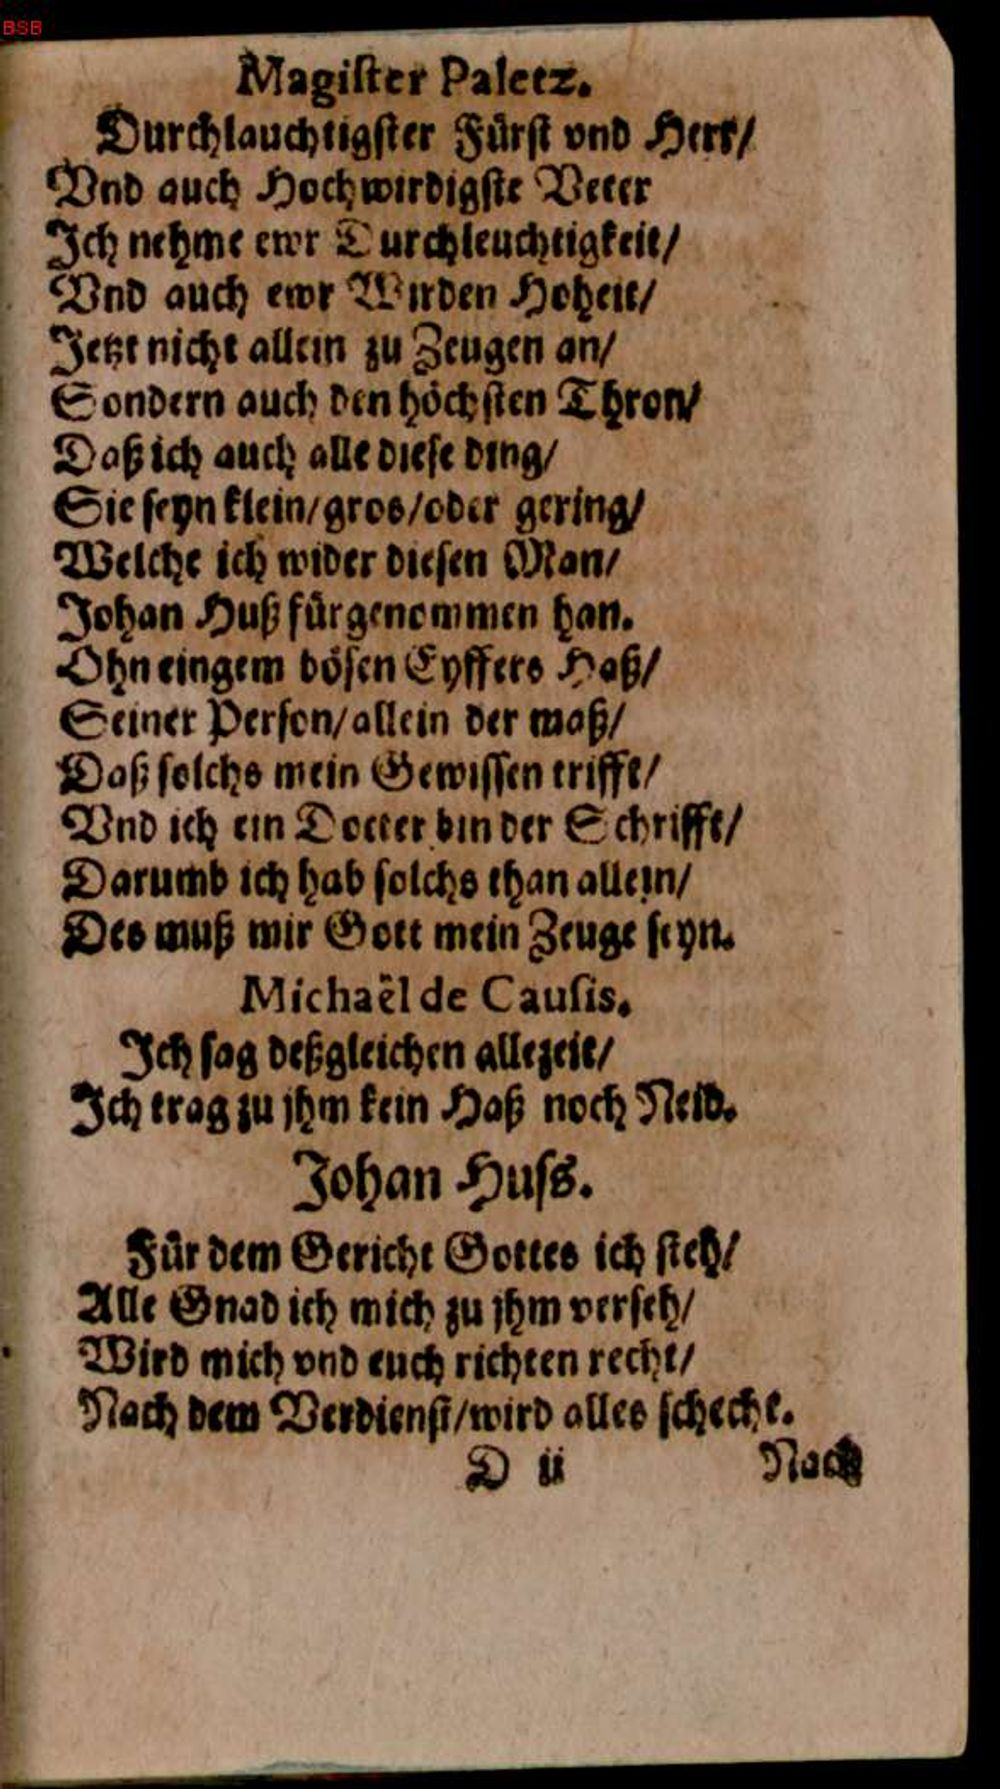 BSB
Magiſter Paletz.
Durchlauchtigſter Fürſt vnd Herr/
Vnd auch Hochwirdigſte Veter
Ich nehme ewr Durchleuchtigkeit/
Vnd auch ewr Wirden Hoheit/
Jetzt nicht allein zu Zeugen an/
Sondern auch den höchſten Thron/
Daß ich auch alle dieſe ding/
Sie ſeyn klein/gros/oder gering/
Welche ich wider dieſen Man/
Johan Huß fürgenommen han.
Ohn eingem böſen Eyffers Haß/
Seiner Perſon/allein der maß/
Daß ſolchs mein Gewiſſen trifft/
Vnd ich ein Docter bin der Schrifft/
Darumb ich hab ſolchs than allein/
Des muß mir Gott mein Zeuge ſeyn.
Michaël de Cauſis.
Ich ſag deßgleichen allezeit/
Ich trag zu jhm kein Haß noch Neid.
Johan Huſs.
Für dem Gericht Gottes ich ſteh/
Alle Gnad ich mich zu jhm verſeh/
Wird mich vnd euch richten recht/
Nach dem Verdienſt/wird alles ſchecht.
D ii Nach